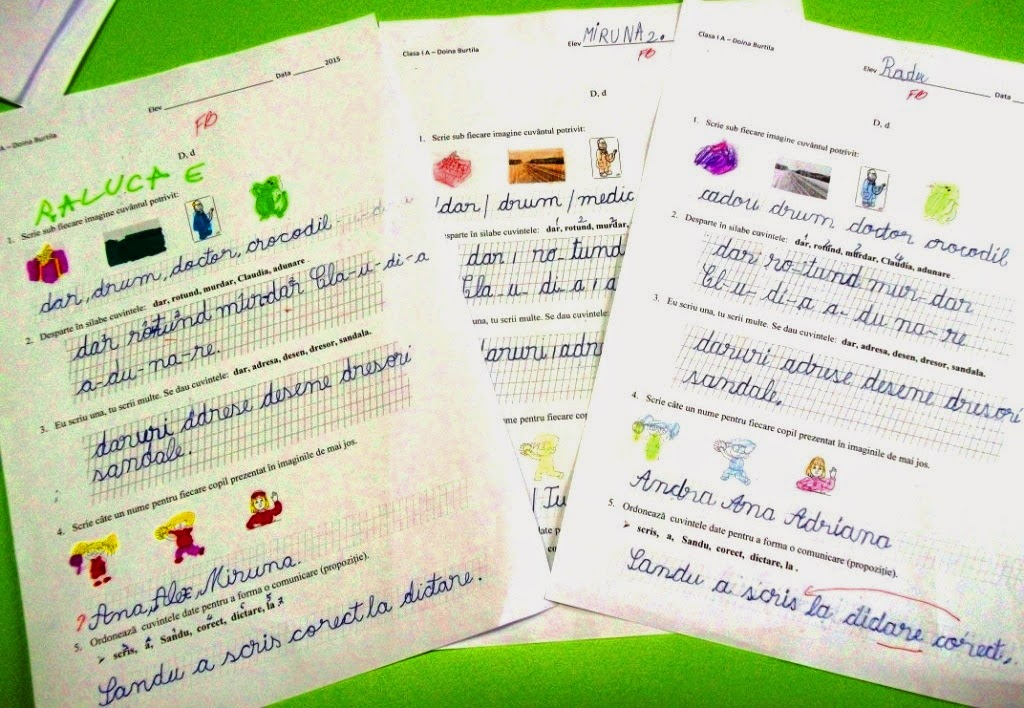 A – Doina Burtila
Elev Data 2015
FB
D, d
RALUCA E
1. Scrie sub fiecare imagine cuvântul potrivit:
dar, drum, doctor, crocodil
2. Desparte în silabe cuvintele: dar, rotund, murdar, Claudia, adunare.
dar ro-tund mur-dar Cla-u-di-a
a-du-na-re.
3. Eu scriu una, tu scrii multe. Se dau cuvintele: dar, adresa, desen, dresor, sandala.
daruri adrese desene dresori
sandale.
4. Scrie câte un nume pentru fiecare copil prezentat în imaginile de mai jos.
? Ana, Alex, Miruna.
5. Ordonează cuvintele date pentru a forma o comunicare (propoziție).
➢ scris, a, Sandu, corect, dictare, la
Sandu a scris corect la dictare.
Clasa I A – Doina Burtila
Elev MIRUNA 2.
FB
D, d
1. Scrie sub fiecare imagine cuvântul potrivit:
dar / drum / medic
esparte în silabe cuvintele: dar, rotund, murdar,
dar / ro-tund
Cla-u-di-a / a
una, tu scrii multe. Se dau cuvintele:
daruri / adre
nume pentru fiecare cop
/ Iu
date pentru a
Clasa I A – Doina Burtila
Elev Radu Data
FB
D, d
1. Scrie sub fiecare imagine cuvântul potrivit:
cadou drum doctor crocodil
2. Desparte în silabe cuvintele: dar, rotund, murdar, Claudia, adunare.
dar ro-tund mur-dar
Cl-u-di-a a-du na-re
3. Eu scriu una, tu scrii multe. Se dau cuvintele: dar, adresa, desen, dresor, sandala.
daruri adrese desene dresori
sandale.
4. Scrie câte un nume pentru fiecare copil prezentat în imaginile de mai jos.
Andra Ana Adriana
5. Ordonează cuvintele date pentru a forma o comunicare (propoziție).
➢ scris, a, Sandu, corect, dictare, la .
Sandu a scris la didare corect.